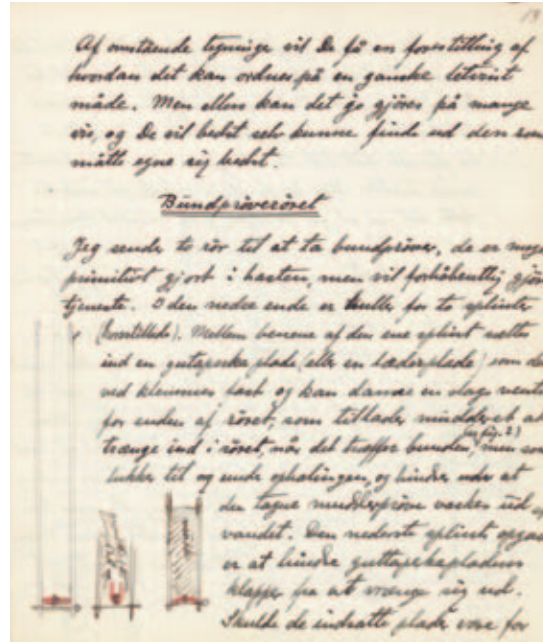 19
Af omstående tegninge vil De få en forestilling af
hvordan det kan ordnes på en ganske letvint
måde. Men ellers kan det jo gjöres på mange
vis, og De vil bedst selv kunne finde ud den som
måtte egne sig bedst.
Bundpröveröret
Jeg sender to rör til at ta bundpröver, de er meget
primitivt gjort i hasten, men vil forhåbentlig gjöre
tjeneste. I den nedre ende er huller for to splinter
(korsstillede). Mellem benene af den ene splint sættes
ind en gutaperka plade (eller en læderplade) som der
ved klemmes fast og kan danne en slags ventil
for enden af röret, som tillader mudderet at
trænge ind i röret, når det træffer bunden, (se fig. 2) men som
lukker til og under ophalingen, og hindrer at
den tagne mudderpröve vaskes ud af
vandet. Den nederste splints opgave
er at hindre guttaperkapladens
klapper fra at vrænge sig ud.
Skulde de indsatte plader være for